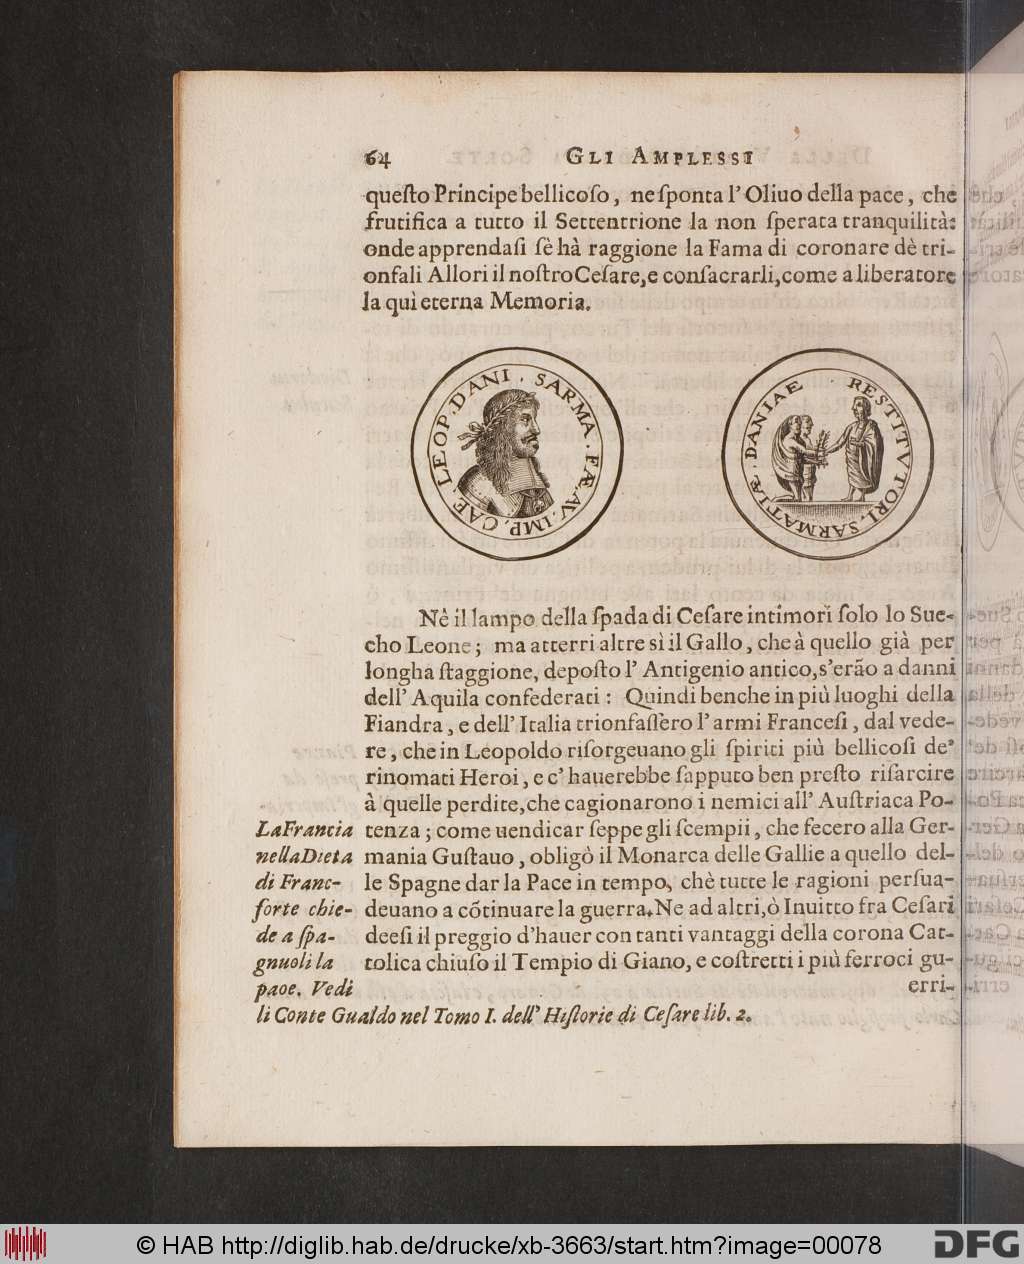 64 GLI AMPLESSI
queſto Principe bellicoſo, ne ſponta l' Oliuo della pace, che
frutifica a tutto il Settentrione la non ſperata tranquilità:
onde apprendaſi ſè hà raggione la Fama di coronare dè tri-
onfali Allori il noſtro Ceſare, e conſacrarli, come a liberatore
la quì eterna Memoria.
IMP. CAE. LEOP. DANI. SARMA. FÆ. AV.
RESTITVTORI. SARMATIÆ. DANIAE
Nè il lampo della ſpada di Ceſare intimorì ſolo lo Sue-
cho Leone; ma atterri altre sì il Gallo, che à quello già per
longha ſtaggione, depoſto l' Antigenio antico, s'erão a danni
dell' Aquila confederati: Quindi benche in più luoghi della
Fiandra, e dell' Italia trionfaſſero l' armi Franceſi, dal vede-
re, che in Leopoldo riſorgeuano gli ſpiriti più bellicoſi de'
rinomati Heroi, e c' hauerebbe ſapputo ben preſto riſarcire
à quelle perdite, che cagionarono i nemici all' Auſtriaca Po-
tenza; come uendicar ſeppe gli ſcempii, che fecero alla Ger-
mania Guſtauo, obligò il Monarca delle Gallie a quello del-
le Spagne dar la Pace in tempo, chè tutte le ragioni perſua-
deuano a cõtinuare la guerra. Ne ad altri, ò Inuitto fra Ceſari
deeſi il preggio d'hauer con tanti vantaggi della corona Cat-
tolica chiuſo il Tempio di Giano, e coſtretti i più ferroci gu-
erri-
La Francia
nella Dieta
di Franc-
forte chie-
de a ſpa-
gnuoli la
paoe. Vedi
li Conte Gualdo nel Tomo I. dell' Hiſtorie di Ceſare lib. 2.
© HAB http://diglib.hab.de/drucke/xb-3663/start.htm?image=00078
DFG